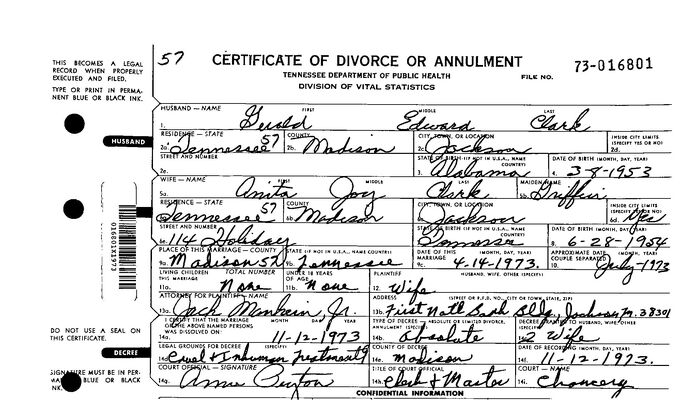 57 CERTIFICATE OF DIVORCE OR ANNULMENT 73-016801
TENNESSEE DEPARTMENT OF PUBLIC HEALTH FILE NO.
DIVISION OF VITAL STATISTICS
THIS BECOMES A LEGAL
RECORD WHEN PROPERLY
EXECUTED AND FILED.
TYPE OR PRINT IN PERMA-
NENT BLUE OR BLACK
INK.
HUSBAND
HUSBAND — NAME FIRST MIDDLE LAST
1. Gerald Edward Clark
RESIDENCE - STATE COUNTY CITY, TOWN, OR LOCATION INSIDE CITY LIMITS
(SPECIFY YES OR NO)
2a. Tennessee 57 2b. Madison 2c. Jackson 2d.
STREET AND NUMBER STATE OF BIRTH (IF NOT IN U.S.A., NAME COUNTRY) DATE OF BIRTH (MONTH, DAY, YEAR)
2e. Alabama 4. 3-8-1953
WIFE — NAME FIRST MIDDLE LAST MAIDEN NAME
5a. Anita Joy Clark 5b. Griffin
RESIDENCE - STATE COUNTY CITY, TOWN, OR LOCATION INSIDE CITY LIMITS
(SPECIFY YES OR NO)
Tennessee 57 6b. Madison Jackson 6d. Yes
STREET AND NUMBER STATE OF BIRTH (IF NOT IN U.S.A., NAME COUNTRY) DATE OF BIRTH (MONTH, DAY, YEAR)
6e. 114 Holiday Tennessee 8. 6-28-1954
PLACE OF THIS MARRIAGE - COUNTY STATE (IF NOT IN U.S.A., NAME COUNTRY) (MONTH, DAY, YEAR) APPROXIMATE DATE
COUPLE SEPARATED
9a. Madison 57 9b. Tennessee 9c. 4-14-1973. 10. July-1973
LIVING CHILDREN TOTAL NUMBER UNDER 18 YEARS PLAINTIFF HUSBAND, WIFE, OTHER (SPECIFY)
THIS MARRIAGE OF AGE
11a. None 11b. None 12. Wife
ATTORNEY FOR PLAINTIFF - NAME ADDRESS (STREET OR R.F.D. NO., CITY OR TOWN, STATE, ZIP)
13a. Jack Jr. 13b. First Natl Bank Bldg, Jackson, Tn. 38301
I CERTIFY THAT THE MARRIAGE MONTH DAY YEAR TYPE OF DECREE - ABSOLUTE OR LIMITED DIVORCE, DECREE GRANTED TO HUSBAND, WIFE, OTHER
OF THE ABOVE NAMED PERSONS ANNULMENT (SPECIFY) (SPECIFY)
WAS DISSOLVED ON:
11-12-1973 14b. Absolute 2 Wife
DO NOT USE A SEAL ON
THIS CERTIFICATE.
DECREE
LEGAL GROUNDS FOR DECREE (SPECIFY) COUNTY OF DECREE DATE OF RECORDING (MONTH, DAY, YEAR)
Cruel & Inhuman Treatment 14e. Madison 14f. 11-12-1973.
COURT OFFICIAL - SIGNATURE TITLE OF COURT OFFICIAL COURT — NAME
14g. Clerk & Master Chancery
SIGNATURE MUST BE IN PER-
BLUE OR BLACK
INK.
CONFIDENTIAL INFORMATION